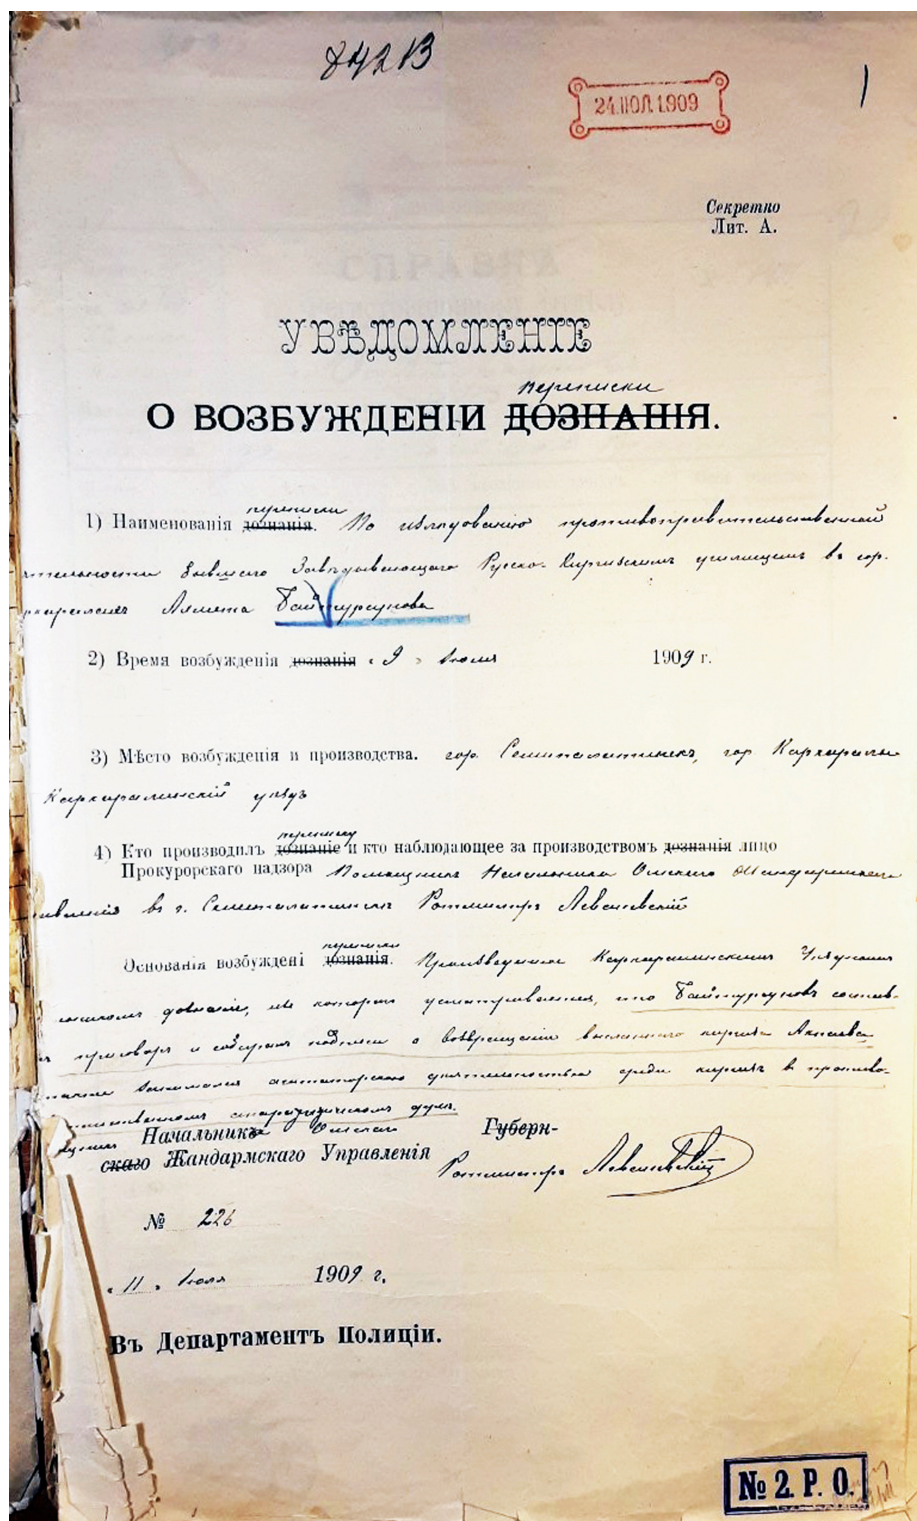 8421В
24.ІЮЛ.1909
Секретно
Лит. А.
УВѢДОМЛЕНІЕ
переписки
О ВОЗБУЖДЕНІИ ДОЗНАНІЯ.
переписки
1) Наименованія дознанія. По изслѣдованію противоправительственной
бывшаго Завѣдывающаго Русско-Киргизскимъ училищемъ въ гор.
Ахмета Байтурсунова
2) Время возбужденія дознанія „9“ Іюля 1909 г.
3) Мѣсто возбужденія и производства. гор. Семипалатинскъ, гор. Каркаралы
Каркаралинскій уѣздъ
переписку
4) Кто производилъ дознаніе и кто наблюдающее за производствомъ дознанія лицо
Прокурорскаго надзора Помощникъ Начальника Омскаго Жандармскаго
въ г. Семипалатинскѣ Ротмистръ Левановскій
переписки
Основанія возбужденi дознанія. Произведенное Каркаралинскимъ Уѣзднымъ
дознаніе, изъ котораго усматривается, что Байтурсуновъ состав-
приговоръ и собиралъ подписи о возвращеніи высланнаго киргиза Акпаева
занимался агитаторскою дѣятельностью среди киргизъ въ противо-
духѣ.
Начальника Омскаго Губерн-
скаго Жандармскаго Управленія
Ротмистръ Левановскій
№ 226
„11“ Іюля 1909 г.
Въ Департаментъ Полиціи.
№ 2. Р. О.